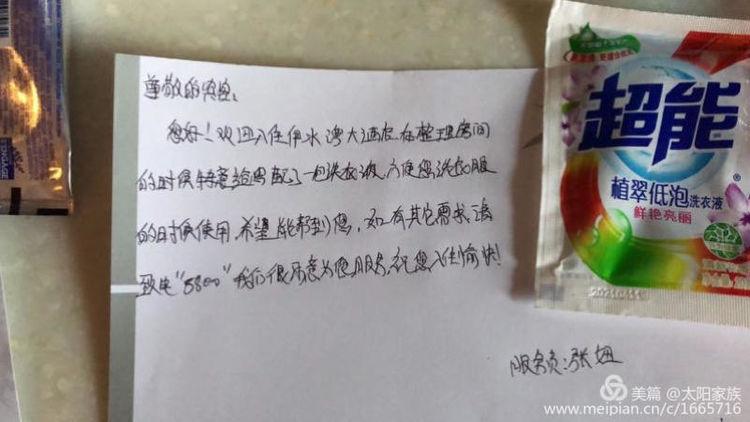 尊敬的宾客:
您好!欢迎入住伊水湾大酒店,在整理房间
的时候特意给您配了一包洗衣液,方便您洗衣服
的时候使用,希望能帮到您,如有其它需求,请
致电"8800"我们很乐意为您服务,祝您入住愉快!
服务员:张妞
超能
植翠低泡洗衣液
鲜艳亮丽
美篇 @太阳家族
www.meipian.cn/c/1665716